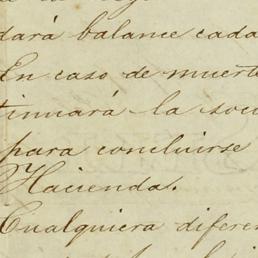 dará balance cada
En caso de muerte
tinuará la soci
para concluirse
Hacienda.
Cualquiera difere